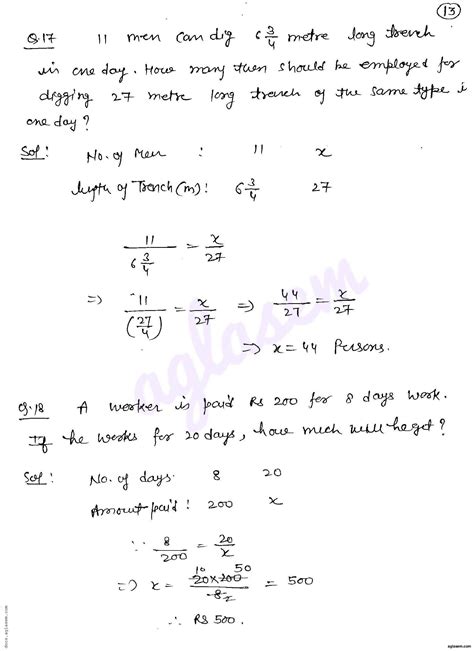 13
Q.17 11 men can dig 6 3/4 metre long trench
in one day. How many men should be employed for
digging 27 metre long trench of the same type i
one day?
Sol: No. of Men : 11 x
length of Trench (m): 6 3/4 27
11 / 6 3/4 = x/27
⇒ 11 / (27/4) = x/27 ⇒ 44/27 = x/27
⇒ x = 44 Persons.
Q.18 A worker is paid Rs 200 for 8 days work.
If he works for 20 days, how much will he get?
Sol: No. of days: 8 20
Amount paid: 200 x
∵ 8/200 = 20/x
10 50
⇒ x = 20×200 / 8 2 = 500
∴ Rs 500.
aglasem
docs.aglasem.com
aglasem.com